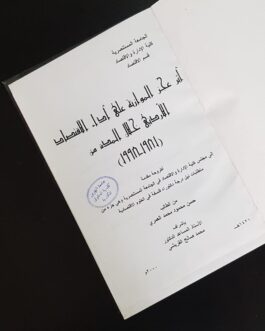 الجامعة المستنصرية
كلية الإدارة والاقتصاد
قسم الاقتصاد
أثر عجز الموازنة على أداء الاقتصاد
الأردني خلال المدة من
(١٩٨١-١٩٩٨)
أطروحة مقدمة
الى مجلس كلية الإدارة والاقتصاد في الجامعة المستنصرية وهي جزء من
متطلبات نيل درجة دكتوراه فلسفة في العلوم الاقتصادية
من الطالب
حسن محمود محمد العمري
بإشراف
الأستاذ المساعد الدكتور
محمد صالح القريشي
١٤٢٠هـ ٢٠٠٠م